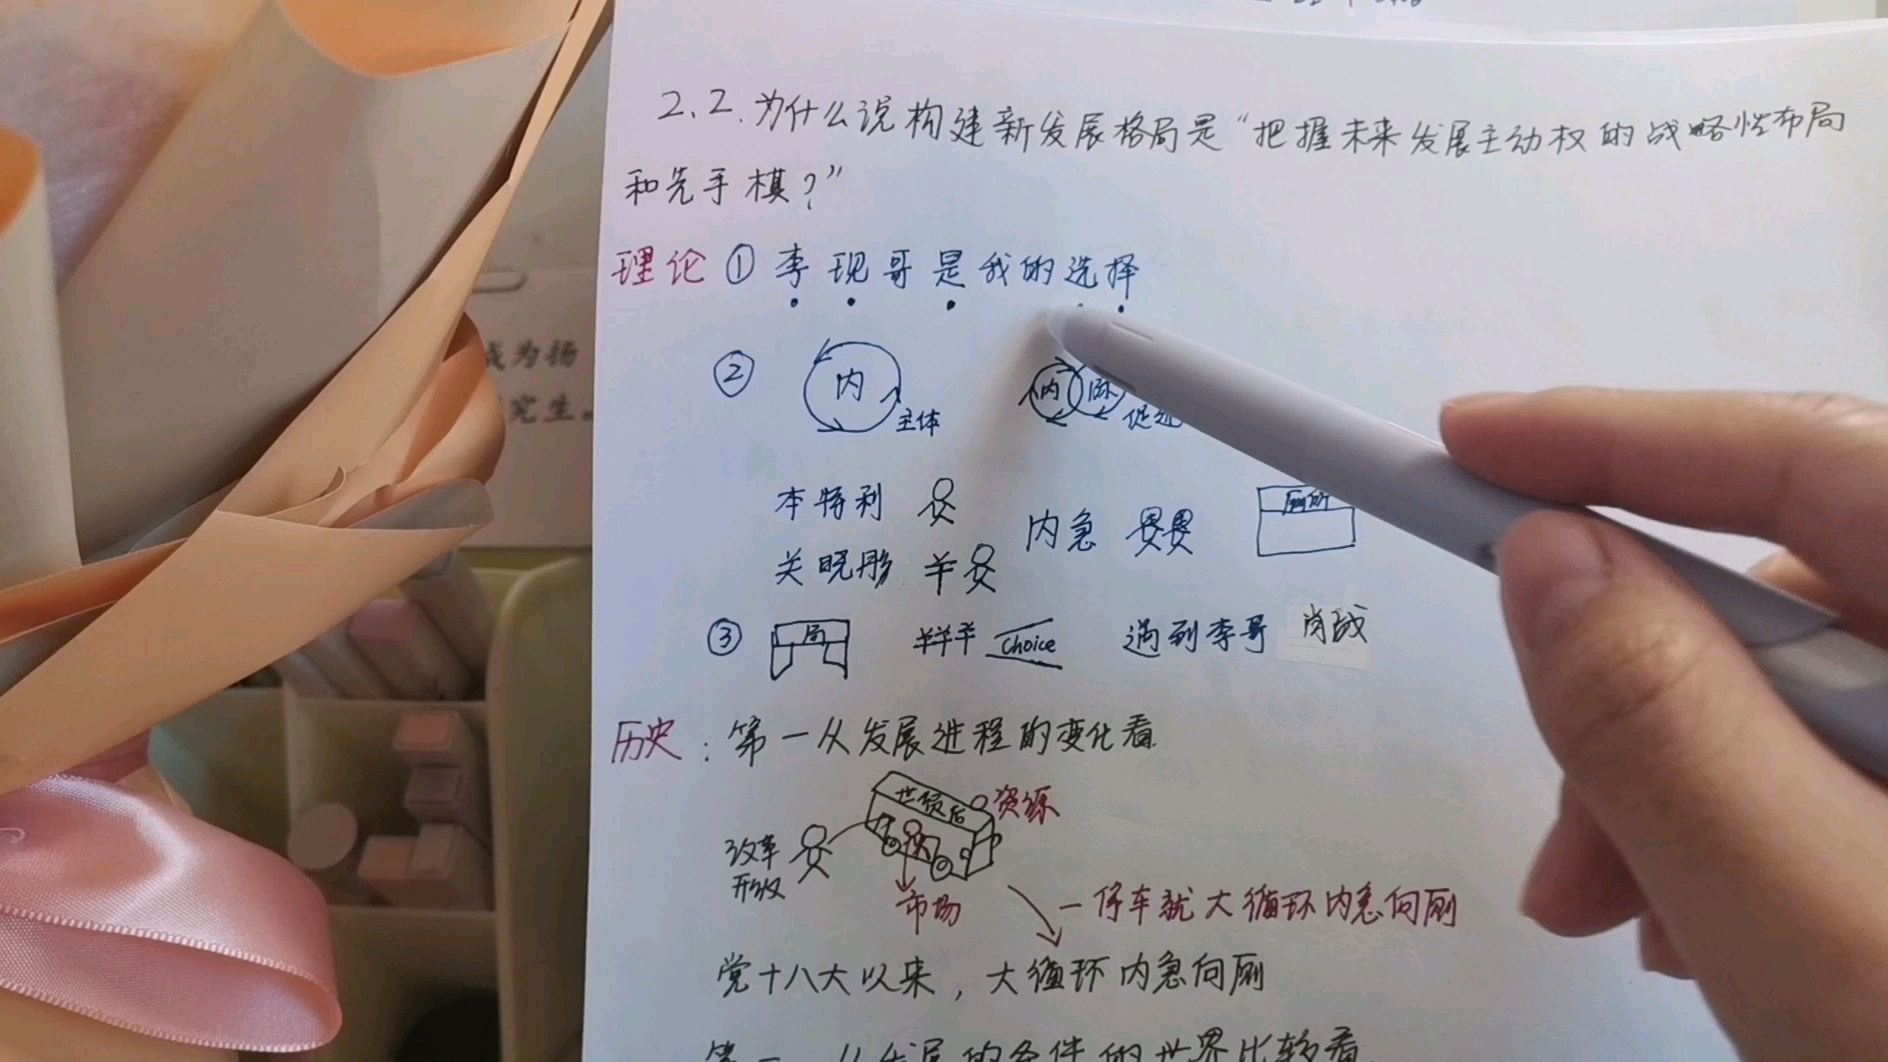 成为扬
究生。
2.2.为什么说构建新发展格局是“把握未来发展主动权的战略性布局
和先手棋？”
理论 ① 李现哥是我的选择
② 内 主体 内
本特利 内急 厕所
关晓彤 羊
③ 局 羊羊羊 Choice 遇到李哥 肖战
历史：第一从发展进程的变化看
世贸后 资源
改革
开放
市场
一停车就大循环内急向厕
党十八大以来，大循环内急向厕